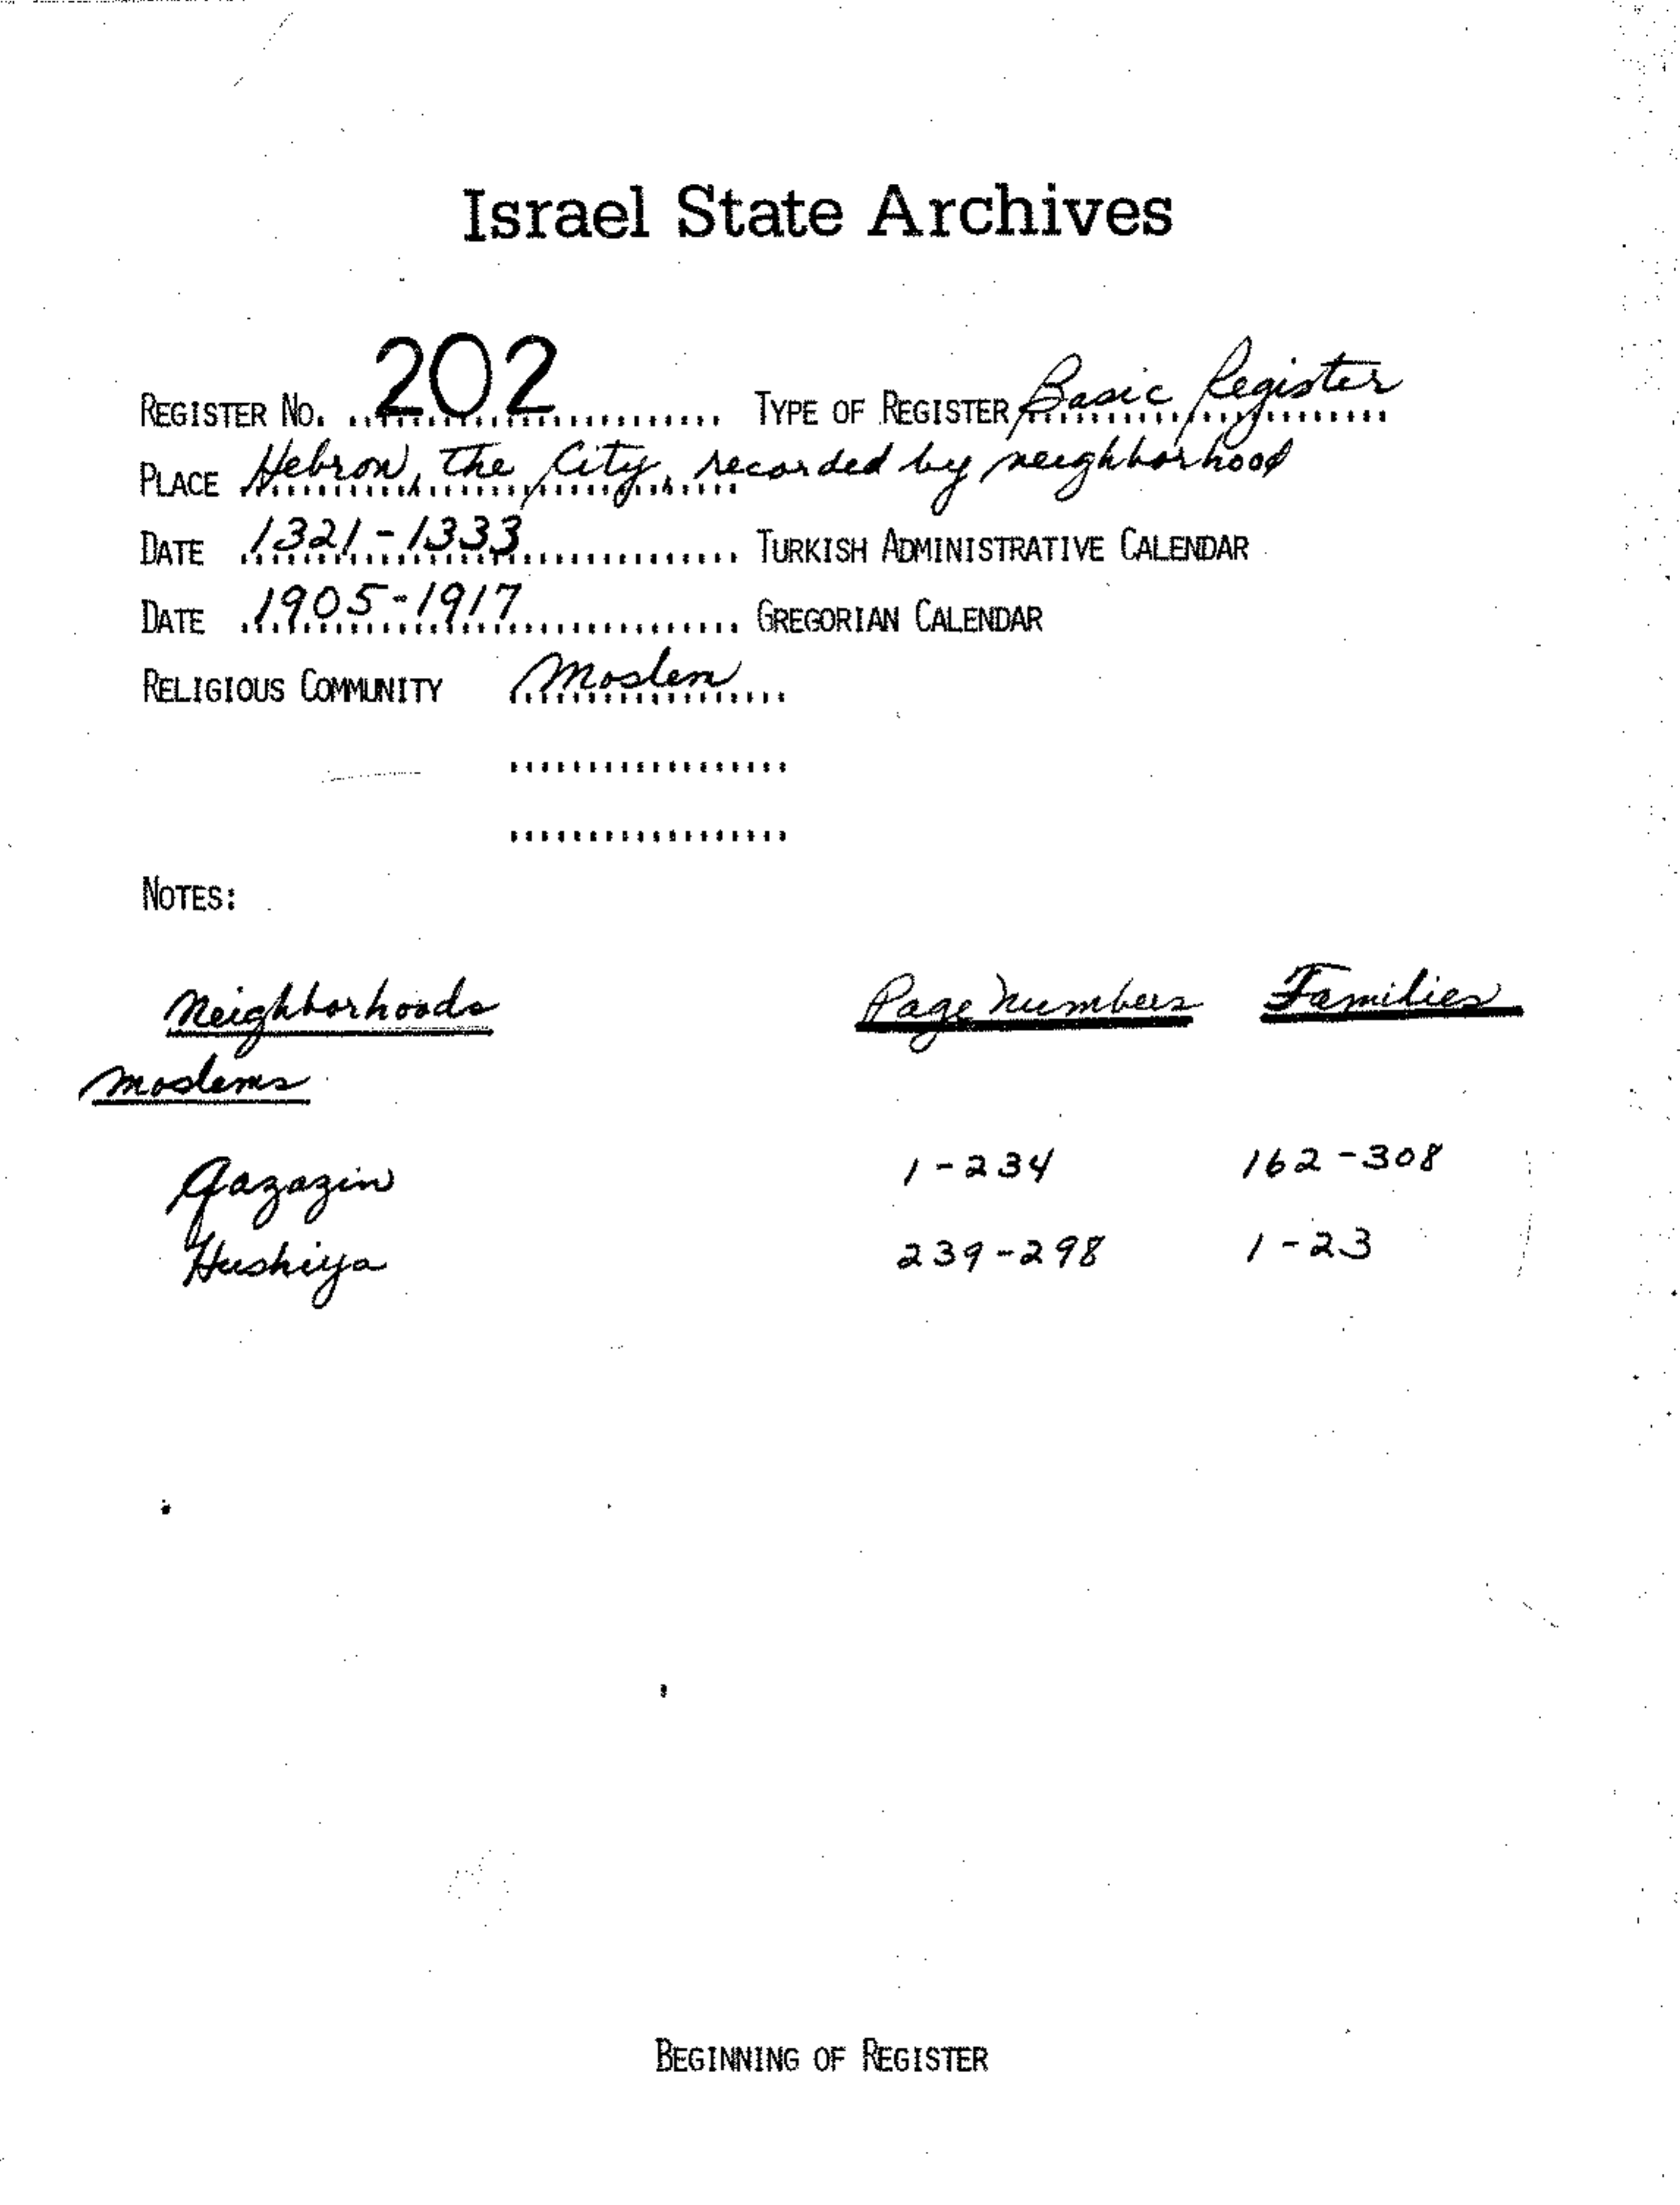 Israel State Archives
REGISTER NO. 202 TYPE OF REGISTER Basic Register
PLACE Hebron, the City, recorded by neighborhood
DATE 1321-1333 TURKISH ADMINISTRATIVE CALENDAR
DATE 1905-1917 GREGORIAN CALENDAR
RELIGIOUS COMMUNITY Moslem
NOTES:
Neighborhoods Page Numbers Families
Moslems
Qazazin 1-234 162-308
Hushiya 239-298 1-23
BEGINNING OF REGISTER